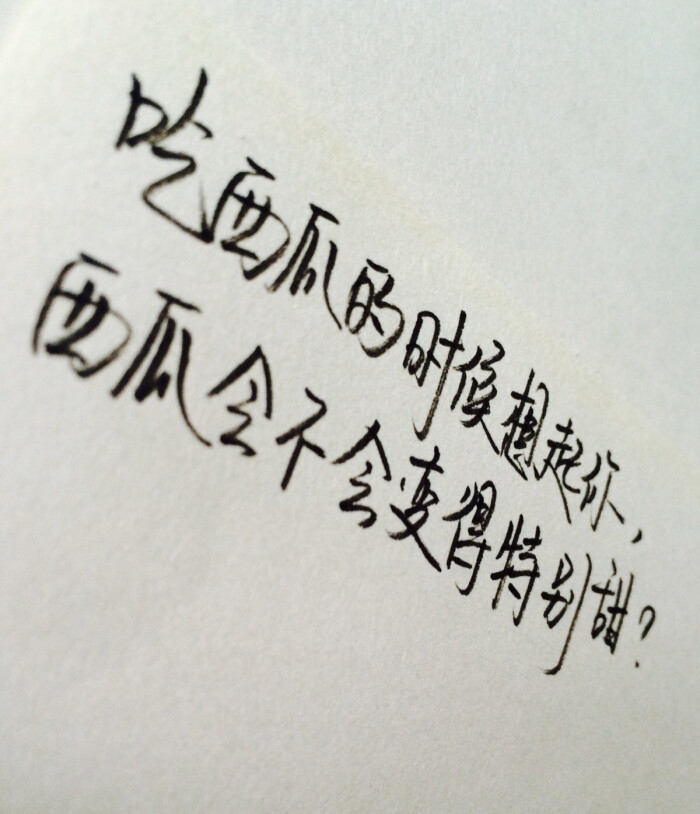 吃西瓜的时候想起你，
西瓜会不会变得特别甜？